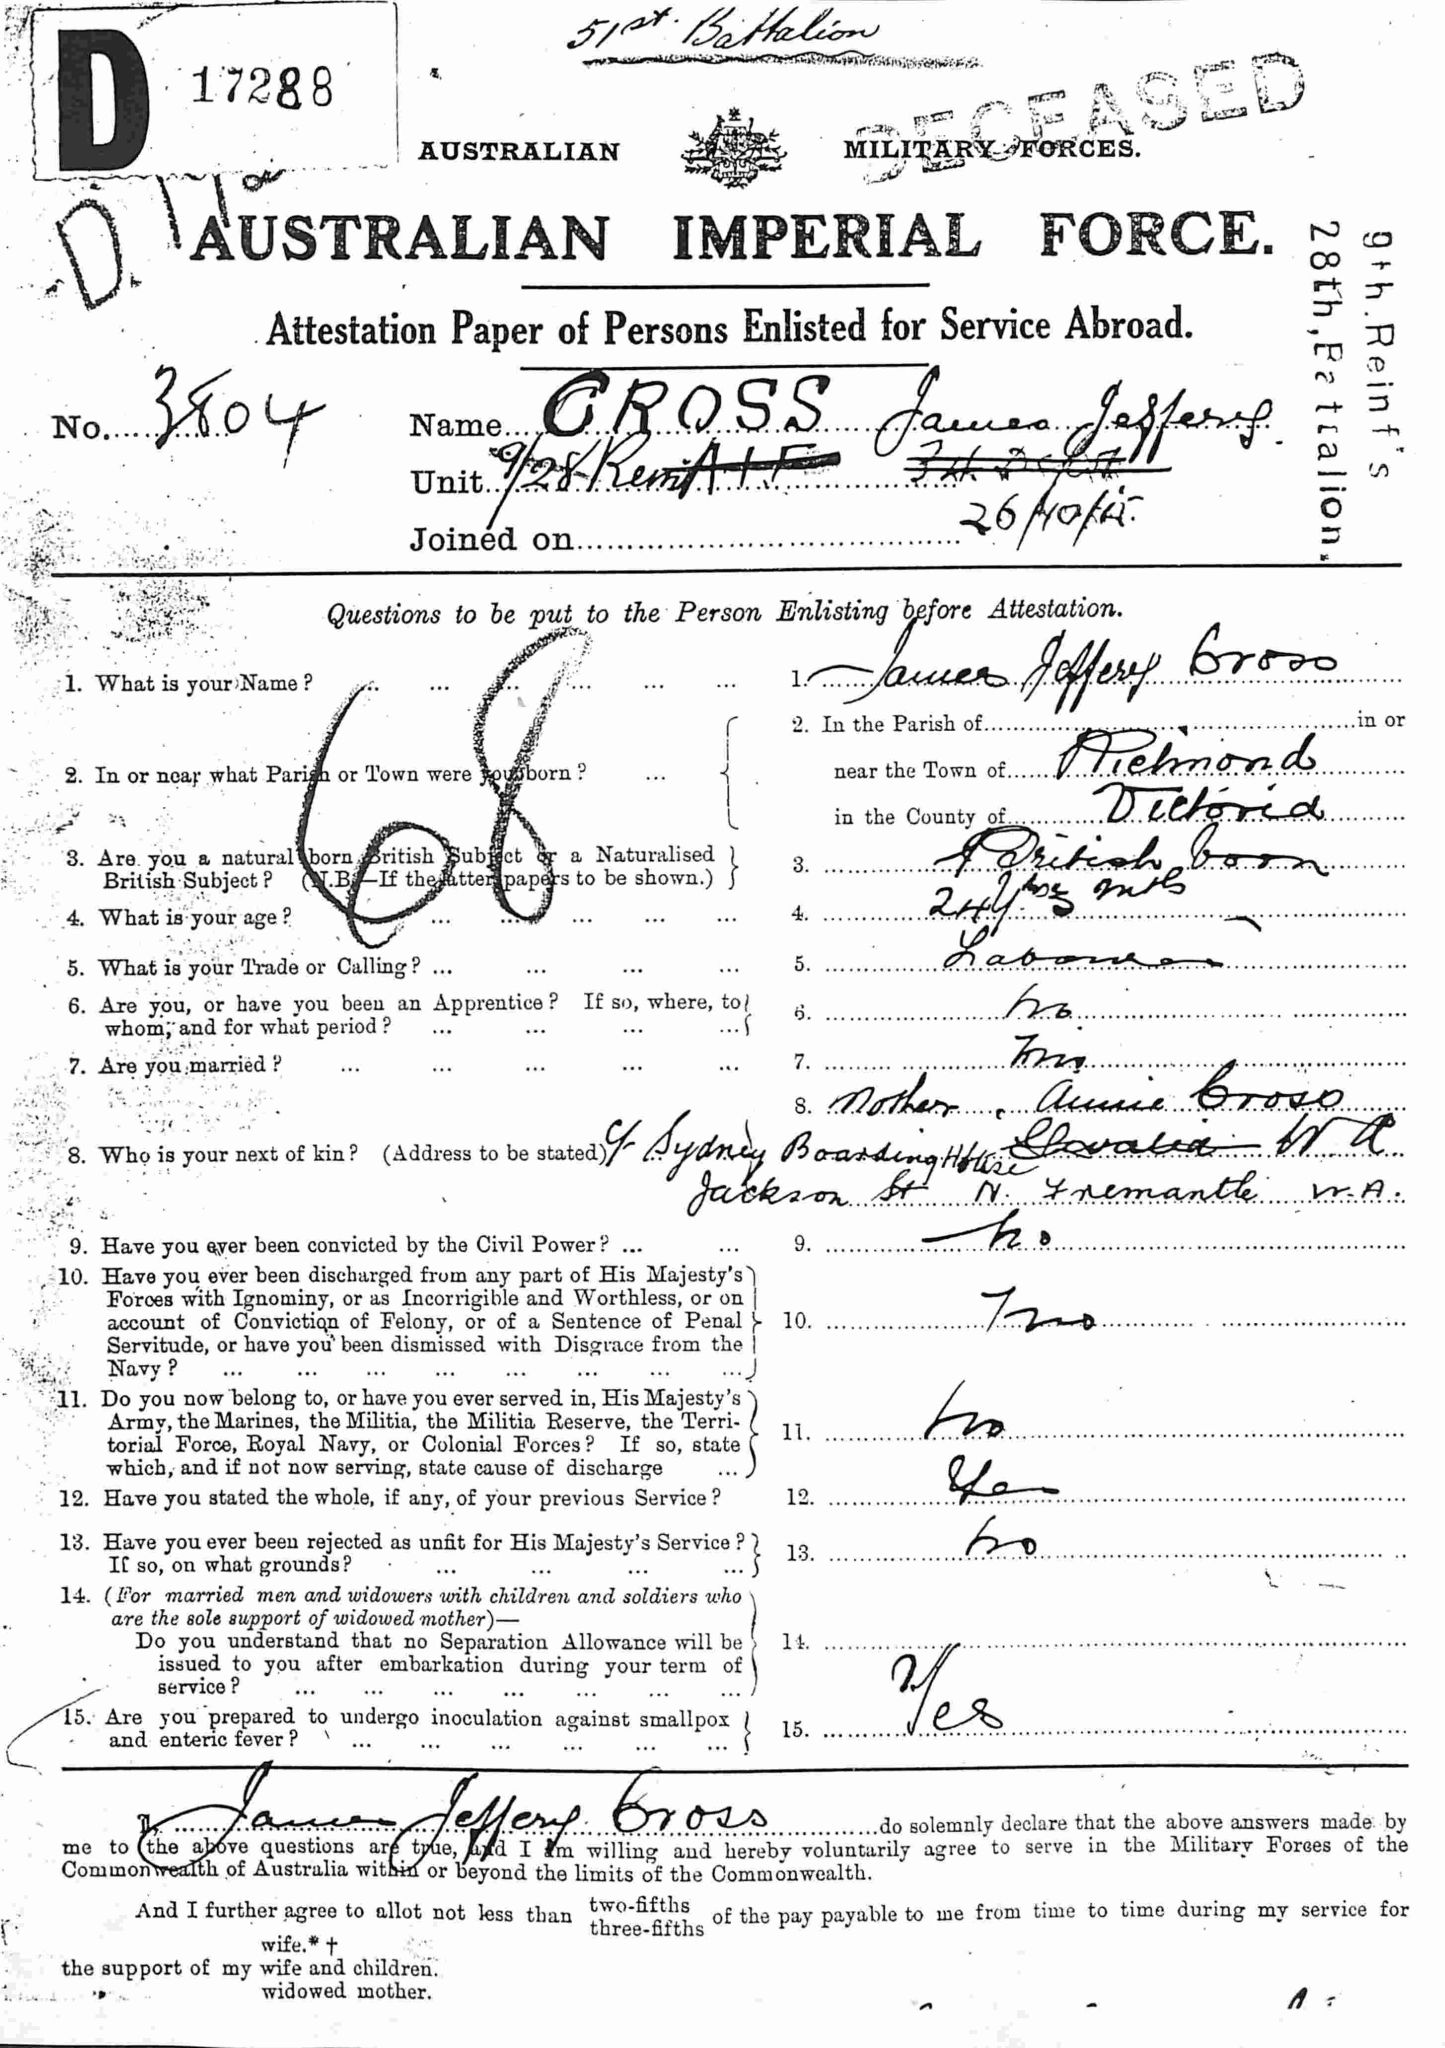 51st. Battalion
D 17288
DECEASED
AUSTRALIAN MILITARY FORCES.
D
AUSTRALIAN IMPERIAL FORCE.
9th. Reinf's
28th, Battalion.
Attestation Paper of Persons Enlisted for Service Abroad.
No. 3804 Name CROSS James Jeffery.
Unit 9/28 Rein A I F
Joined on 26/10/15.
Questions to be put to the Person Enlisting before Attestation.
68
1. What is your Name? ... ... ... ... ... ... 1. James Jeffery Cross
2. In or near what Parish or Town were you born? ... 2. In the Parish of in or
near the Town of Richmond
in the County of Victoria
3. Are you a natural born British Subject or a Naturalised
British Subject? (N.B.—If the latter papers to be shown.) 3. British born
4. What is your age? ... ... ... ... ... 4. 24 yrs 3 mths
5. What is your Trade or Calling? ... ... ... ... 5. Labourer
6. Are you, or have you been an Apprentice? If so, where, to
whom, and for what period? ... ... ... ... 6. No
7. Are you married? ... ... ... ... ... 7. No
8. Mother, Annie Cross
8. Who is your next of kin? (Address to be stated) c/- Sydney Boarding House Gwalia W A
Jackson St N. Fremantle W.A.
9. Have you ever been convicted by the Civil Power? ... ... 9. No
10. Have you ever been discharged from any part of His Majesty's
Forces with Ignominy, or as Incorrigible and Worthless, or on
account of Conviction of Felony, or of a Sentence of Penal 10. No
Servitude, or have you been dismissed with Disgrace from the
Navy? ... ... ... ... ... ... ... ...
11. Do you now belong to, or have you ever served in, His Majesty's
Army, the Marines, the Militia, the Militia Reserve, the Terri-
torial Force, Royal Navy, or Colonial Forces? If so, state 11. No
which, and if not now serving, state cause of discharge ...
12. Have you stated the whole, if any, of your previous Service? 12. Yes
13. Have you ever been rejected as unfit for His Majesty's Service?
If so, on what grounds? ... ... ... ... 13. No
14. (For married men and widowers with children and soldiers who
are the sole support of widowed mother)—
Do you understand that no Separation Allowance will be 14.
issued to you after embarkation during your term of
service? ... ... ... ... ... ... ...
15. Are you prepared to undergo inoculation against smallpox
and enteric fever? ... ... ... ... ... ... 15. Yes
I, James Jeffery Cross do solemnly declare that the above answers made by
me to the above questions are true, and I am willing and hereby voluntarily agree to serve in the Military Forces of the
Commonwealth of Australia within or beyond the limits of the Commonwealth.
And I further agree to allot not less than two-fifths
three-fifths of the pay payable to me from time to time during my service for
wife.* †
the support of my wife and children.
widowed mother.